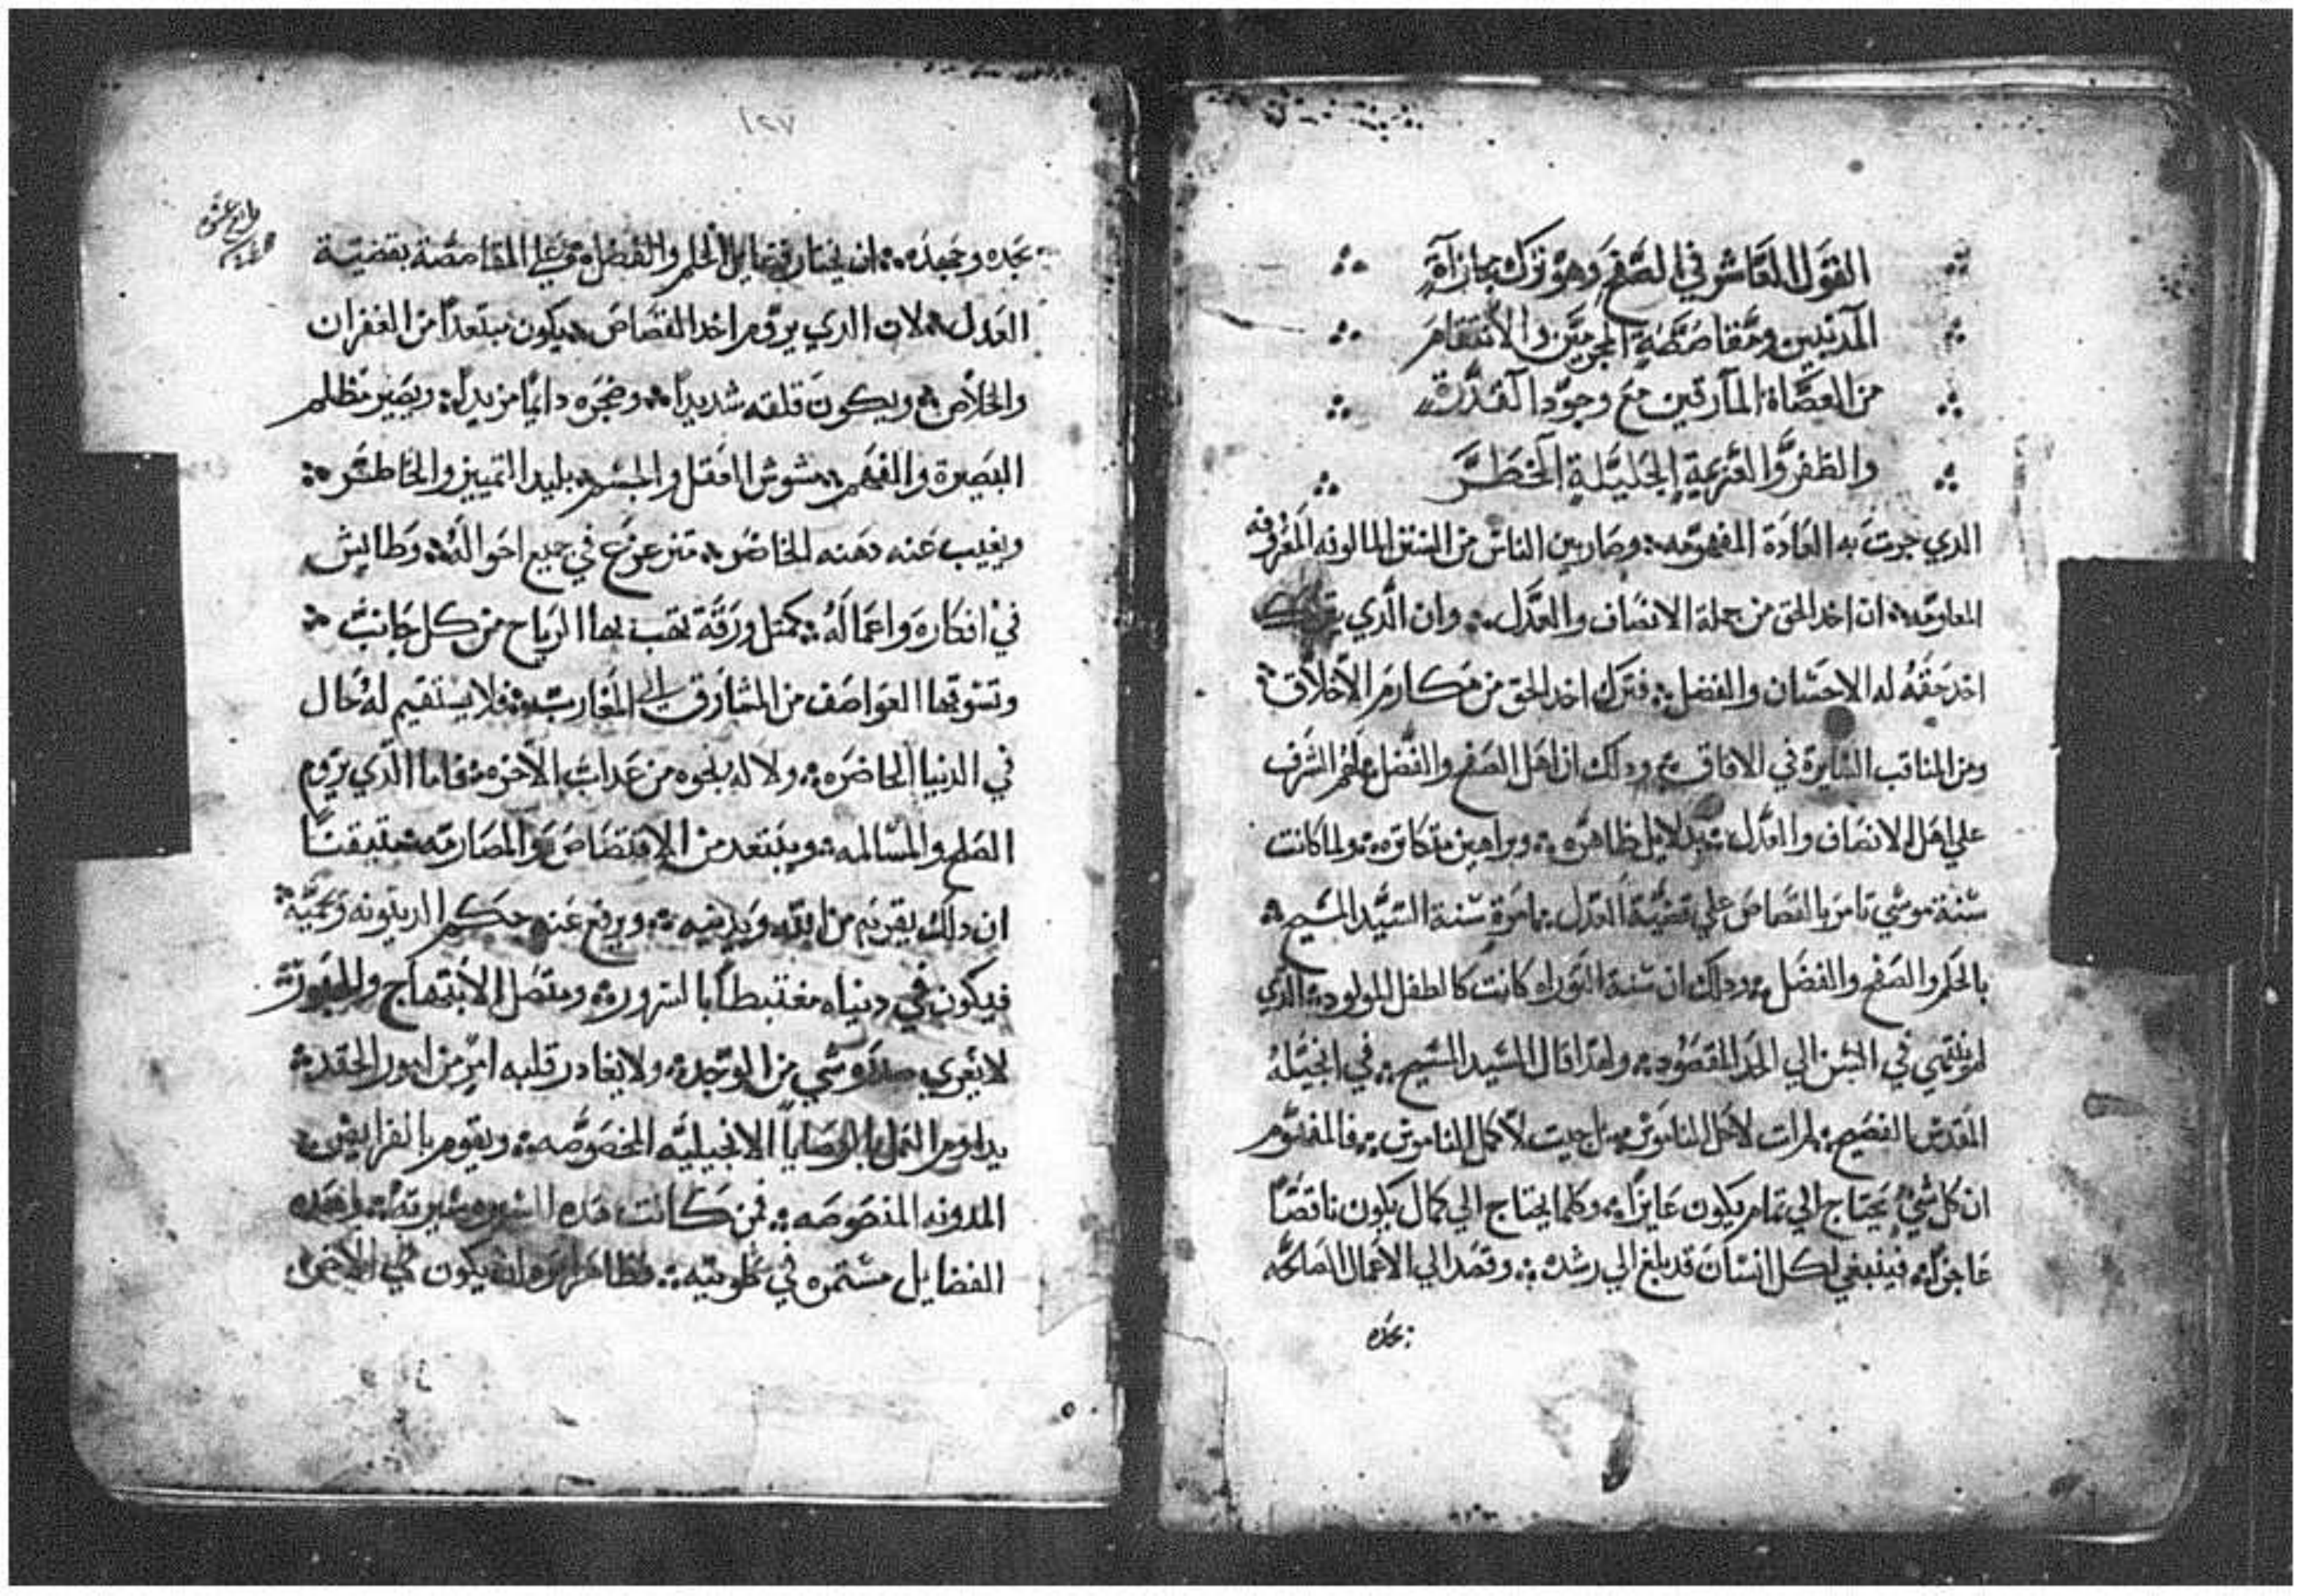 القول العاشر في الصفح وهو ترك مجازاة
المذنبين ومقاصصة المجرمين والانتقام
من العصاة المارقين مع وجود القدرة
والظفر والعزيمة الجليلة الخطر
الدي جرت به العادة المفهومه وصار بين الناس من السنن المالوفه المعروفه
المعلومه ان اخد الحق من جملة الانصاف والعدل وان الدي يترك
اخد حقه له الاحسان والفضل فترك اخد الحق من مكارم الاخلاق
ومن المناقب السايرة في الافاق ودلك ان اهل الصفح والفضل لهم الشرف
علي اهل الانصاف والعدل بدلايل ظاهره وبراهين متكاتره ولما كانت
سنة موسي تامر بالقصاص علي قضية العدل بامرة سنة السيد المسيح
بالحلم والصفح والفضل ودلك ان سنة التوراه كانت كالطفل المولود الدي
لم ينتهي في السن الي الحد المقصود ولهدا قال السيد المسيح في انجيله
المقدس الفصيح لم ات لاحل الناموس بل جيت لاكمل الناموس فالمفهوم
ان كل شي يحتاج الي تمام يكون عايزا وكلما يحتاج الي كمال يكون ناقصا
عاجزا فينبغي لكل انسان قد بلغ الي رشده وقصد الي الاعمال الصالحه
بجده
١٢٧
رابع عشر
بجده وجهده ان يختار فضايل الحلم والفضل علي المقاصصة بقضية
العدل لان الدي يروم اخد القصاص يكون مبتعدا من الغفران
والخلاص ويكون قلقه شديدا وضجره دايما مزيدا ويصير مظلم
البصيرة والفهم مشوش العقل والجسم بليد التمييز والخاطر
ويغيب عنه دهنه الحاضر متزعزع في جميع احواله وطايش
في افكاره واعماله كمتل ورقة تهب بها الرياح من كل جانب
وتسوقها العواصف من المشارق الي المغارب فلا يستقيم له حال
في الدنيا الحاضره ولا له نجوه من عداب الاخره فاما الدي يروم
الصلح والمسالمه ويبتعد من الاقتصاص والمصارمه متيقنا
ان دلك يقربه من الله ويدنيه ويرفع عنه حكم الدينونه
فيكون في دنياه مغتبطا بالسرور ومتصل الابتهاج والحبور
لا يعري صدره شي من الموجده ولا يغادر قلبه امر من امور الحقد
يداوم العمل بالوصايا الانجيليه المخصوصه ويقوم بالفرايض
المدونه المنصوصه فمن كانت هده السيره سيرته وهده
الفضايل مستمره في طويته فظاهر امره ان يكون في الاخره